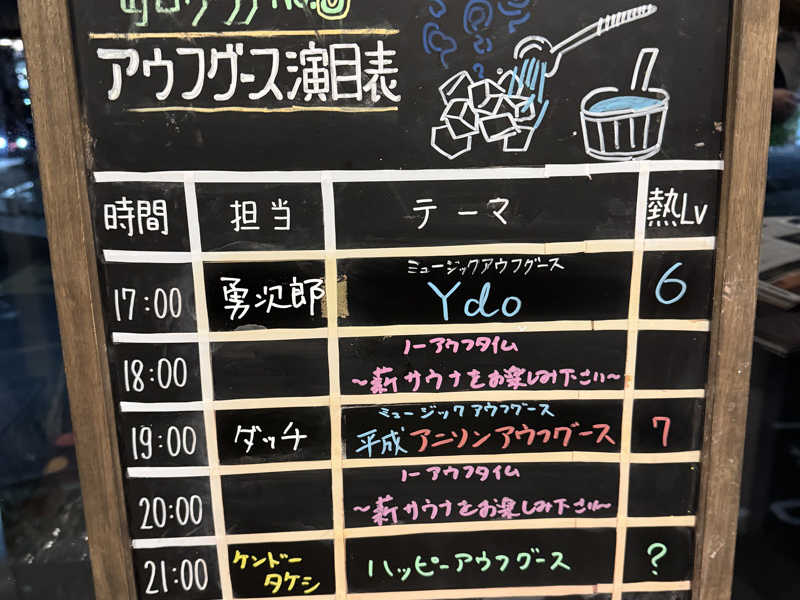 アウフグース演目表
時間 担当 テーマ 熱Lv
ミュージックアウフグース
17:00 勇次郎 Ydo 6
ノーアウフタイム
18:00 〜薪サウナをお楽しみ下さい〜
ミュージックアウフグース
19:00 ダッチ 平成アニソンアウフグース 7
ノーアウフタイム
20:00 〜薪サウナをお楽しみ下さい〜
21:00 ケンドー ハッピーアウフグース ?
タケシ